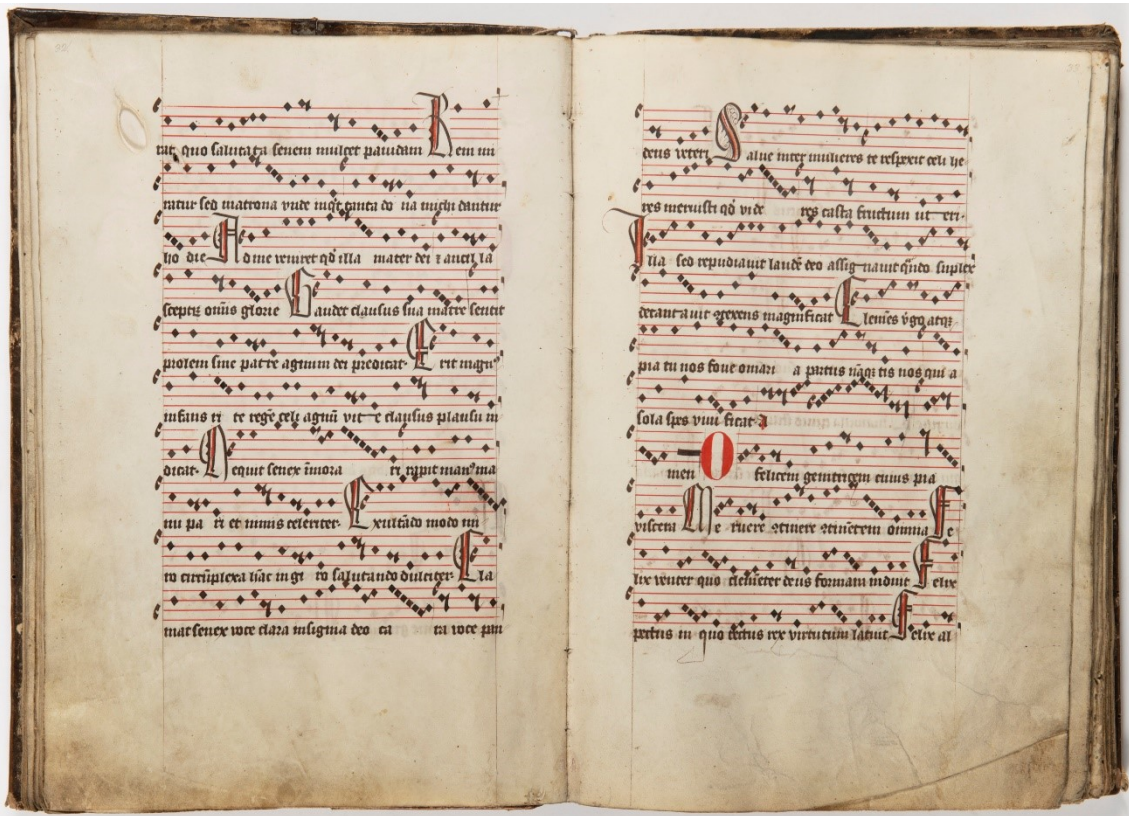 tat quo salutata senem mulcet pauidam Rem mi
ratur sed matrona vnde inqt tanta do na michi dantur
ho die Ad me veniret qd illa mater dei z ancil la
sceptris omnis glorie Gaudet clausus sua matre sentit
prolem sine patre agnum dei predicat Erit magn9
infans te regē celi agnū clausus plausu in
dicat Nequit senex īmora ri rapit man9 ma
nu pa ri et nimis celeriter Exultādo modo mi
ro circūplexa hāc in gi ro salutando dulciter Cla
mat senex voce clara insignia deo ca ra voce pan
deus veteri Salue inter mulieres te respexit celi he
res meruisti qd vide res casta fructum ut eri
Illa sed repudiauit laudē deo assig nauit suplex
decantauit magnificat Clemēs v̄go atqz
pia tu nos foue om̄ari a partus tis nos qui a
sola sp̄es viui ficat A
men O felicem genitricem cuius pia
viscera Me ruere omnia Fe
lix venter quo clementer deus formam induit Felix
pectus in quo tectus rex virtutum latuit Felix al